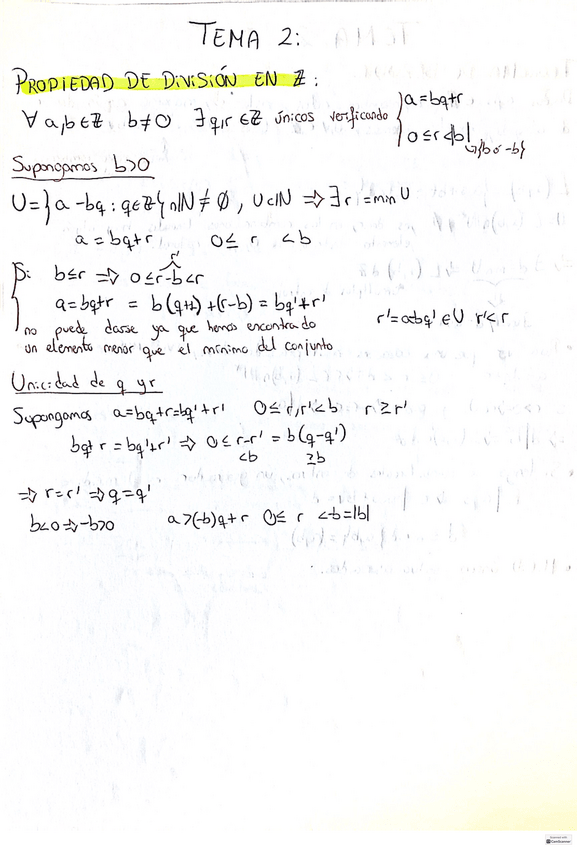 TEMA 2:
PROPIEDAD DE DIVISIÓN EN ℤ:
∀ a,b ∈ ℤ b≠0 ∃ q,r ∈ ℤ únicos verificando { a=bq+r
0≤r<|b| → {b o -b}
Supongamos b>0
U={a-bq : q∈ℤ}∩ℕ ≠ ∅, U⊂ℕ ⇒ ∃ r = min U
a = bq+r 0≤ r <b
r'
Si b≤r ⇒ 0≤r-b<r
a=bq+r = b(q+1)+(r-b) = bq'+r'
r'=a-bq' ∈U r'<r
no puede darse ya que hemos encontrado
un elemento menor que el mínimo del conjunto
Unicidad de q y r
Supongamos a=bq+r=bq'+r' 0≤r,r'<b r≥r'
bq+r=bq'+r' ⇒ 0≤r-r' = b(q-q')
<b ≥b
⇒ r=r' ⇒ q=q'
b<0 ⇒ -b>0 a>(-b)q+r 0≤ r <-b=|b|
CamScanner